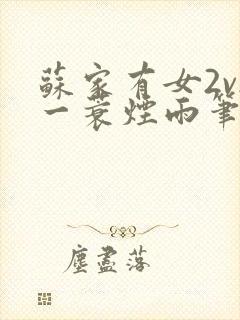 蘇家有女2v
一蓑煙雨筆
塵盡落